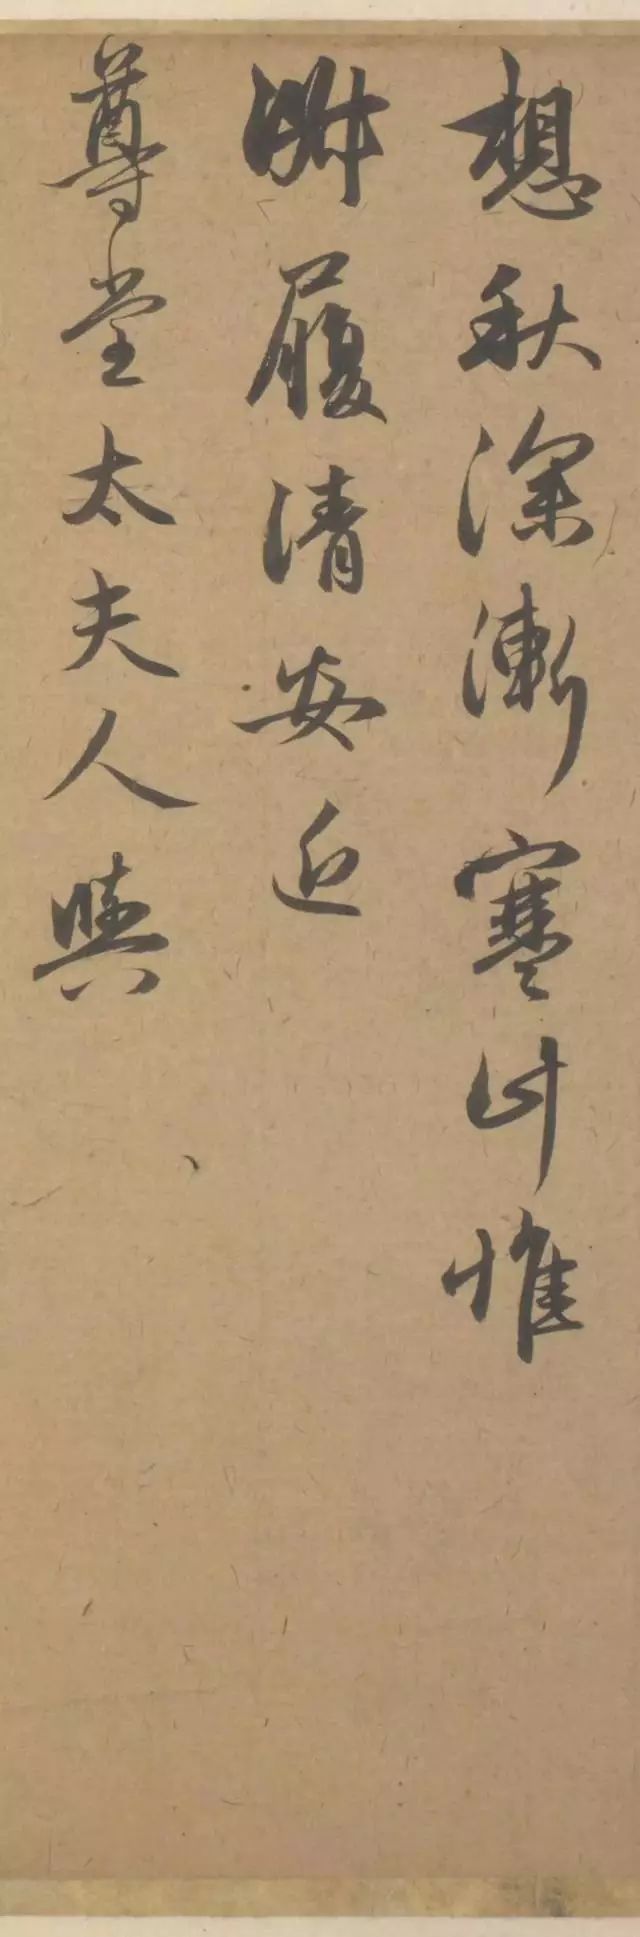 想秋深漸寒計惟
淑履清安近
尊堂太夫人與